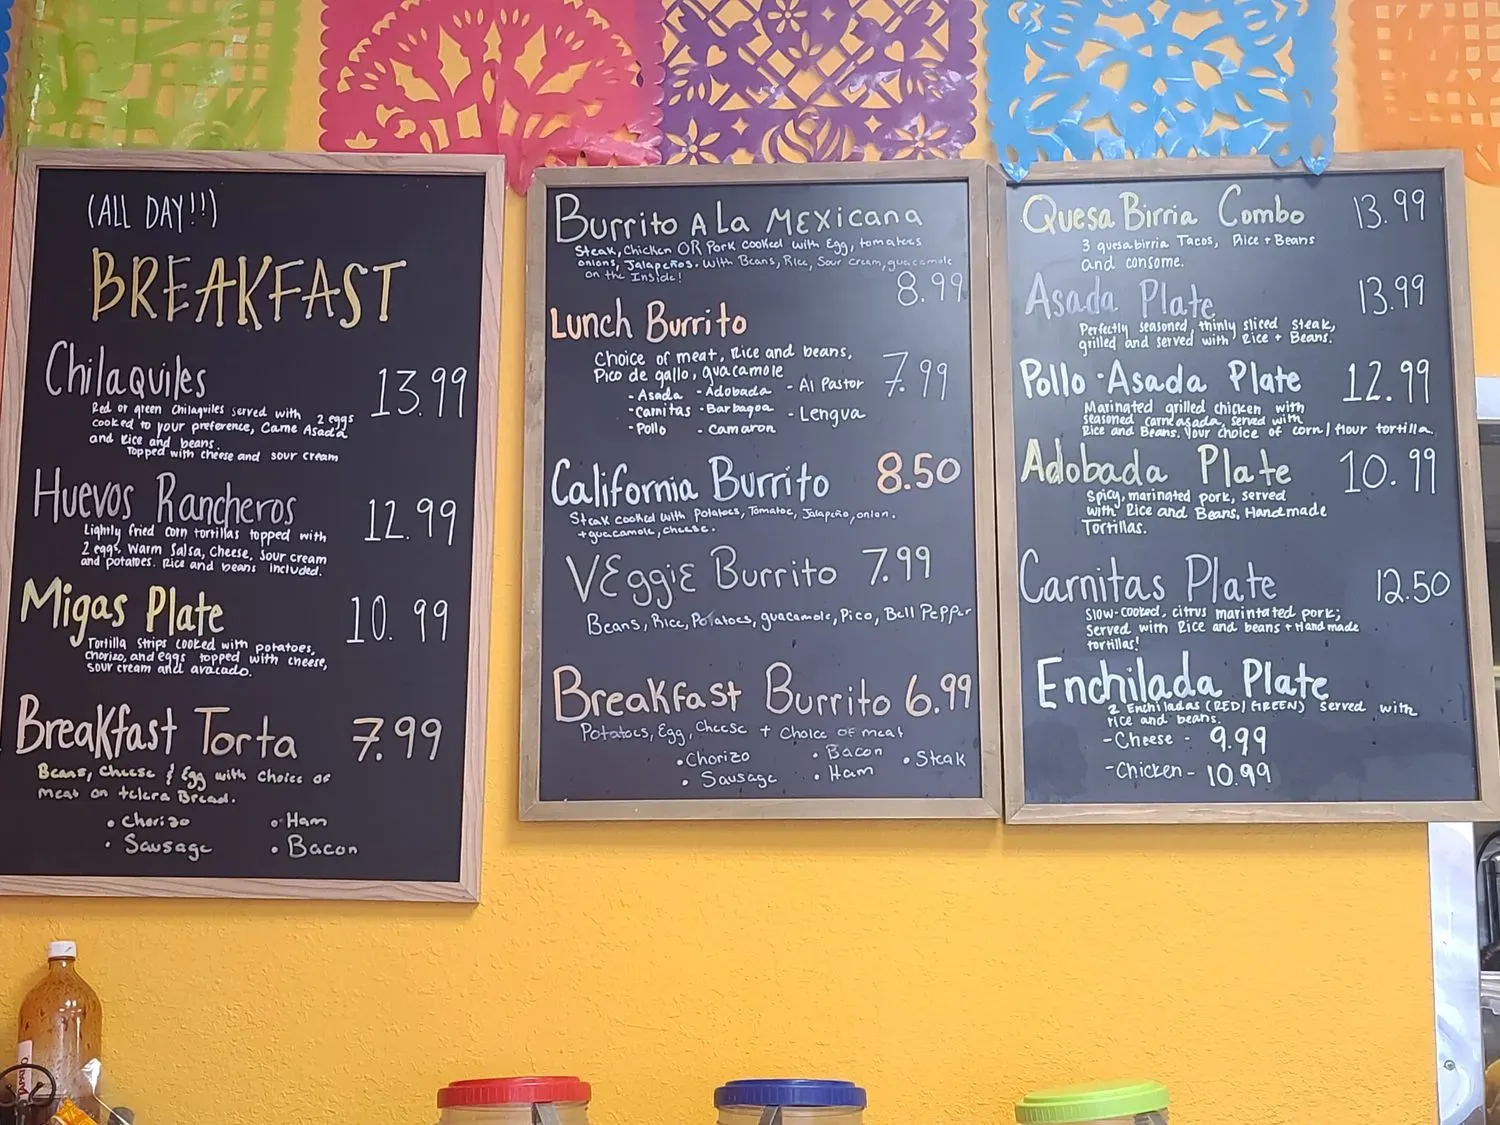 (ALL DAY!!)
BREAKFAST
Chilaquiles 13.99
Red or green Chilaquiles served with 2 eggs
cooked to your preference, Carne Asada
and Rice and beans.
Topped with cheese and sour cream
Huevos Rancheros 12.99
Lightly fried corn tortillas topped with
2 eggs, warm Salsa, Cheese, Sour cream
and potatoes. Rice and beans included.
Migas Plate 10.99
Tortilla Strips cooked with potatoes,
chorizo, and eggs topped with cheese,
sour cream and avacado.
Breakfast Torta 7.99
Beans, Cheese & Egg with choice of
meat on telera Bread.
• Chorizo • Ham
• Sausage • Bacon
Burrito A La Mexicana
Steak, Chicken OR Pork cooked with Egg, tomatoes
onions, Jalapeños. With Beans, Rice, Sour cream, guacamole
on the Inside!
8.99
Lunch Burrito
Choice of meat, Rice and beans, 7.99
Pico de gallo, guacamole
- Asada - Adobada - Al Pastor
- Carnitas - Barbacoa - Lengua
- Pollo - Camaron
California Burrito 8.50
Steak cooked with Potatoes, Tomatoe, Jalapeño, onion.
+ guacamole, cheese.
Veggie Burrito 7.99
Beans, Rice, Potatoes, guacamole, Pico, Bell Pepper
Breakfast Burrito 6.99
Potatoes, Egg, Cheese + Choice of meat
• Chorizo • Bacon • Steak
• Sausage • Ham
Quesa Birria Combo 13.99
3 quesabirria Tacos, Rice + Beans
and consome.
Asada Plate 13.99
Perfectly seasoned, thinly sliced steak,
grilled and served with Rice + Beans.
Pollo · Asada Plate 12.99
Marinated grilled chicken with
seasoned carne asada, served with
Rice and Beans. Your choice of corn / flour tortilla.
Adobada Plate 10.99
Spicy, marinated pork, served
with Rice and Beans, Handmade
Tortillas.
Carnitas Plate 12.50
Slow-cooked, citrus marintated pork;
Served with Rice and beans + Handmade
tortillas!
Enchilada Plate
2 Enchiladas (RED/GREEN) served with
rice and beans.
- Cheese - 9.99
- Chicken - 10.99